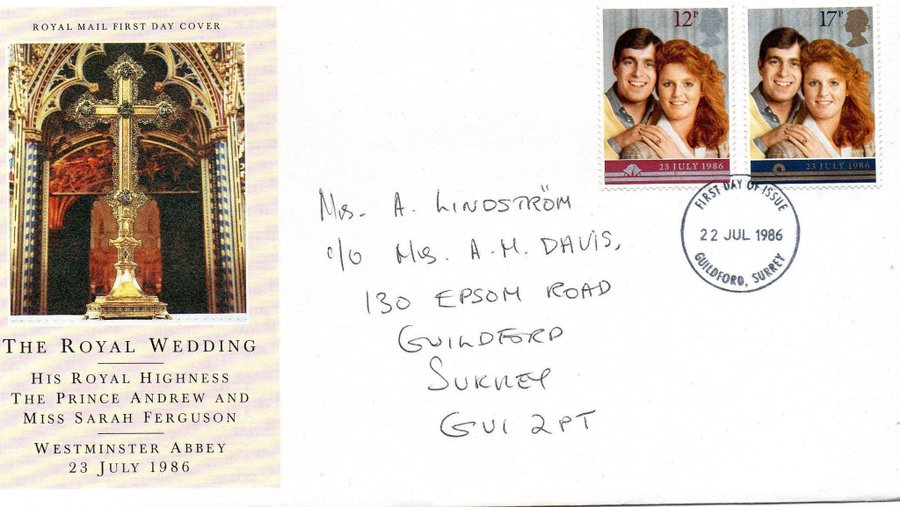 ROYAL MAIL FIRST DAY COVER
THE ROYAL WEDDING
HIS ROYAL HIGHNESS
THE PRINCE ANDREW AND
MISS SARAH FERGUSON
WESTMINSTER ABBEY
23 JULY 1986
12P
23 JULY 1986
17P
23 JULY 1986
FIRST DAY OF ISSUE
22 JUL 1986
GUILDFORD, SURREY
Mrs. A. LINDSTRÖM
c/o Mrs. A.M. DAVIS,
130 EPSOM ROAD
GUILDFORD
SURREY
GU1 2PT